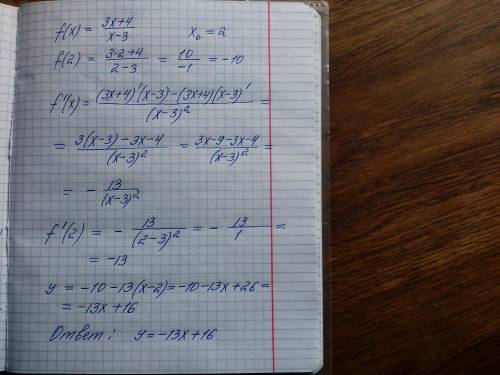 f(x) = (3x+4)/(x-3)    x₀ = 2
f(2) = (3·2+4)/(2-3) = 10/-1 = -10
f'(x) = ((3x+4)'(x-3)-(3x+4)(x-3)')/(x-3)² =
= (3(x-3)-3x-4)/(x-3)² = (3x-9-3x-4)/(x-3)² =
= - 13/(x-3)²
f'(2) = - 13/(2-3)² = - 13/1 =
= -13
y = -10-13(x-2)=-10-13x+26=
= -13x+16
Ответ: y=-13x+16